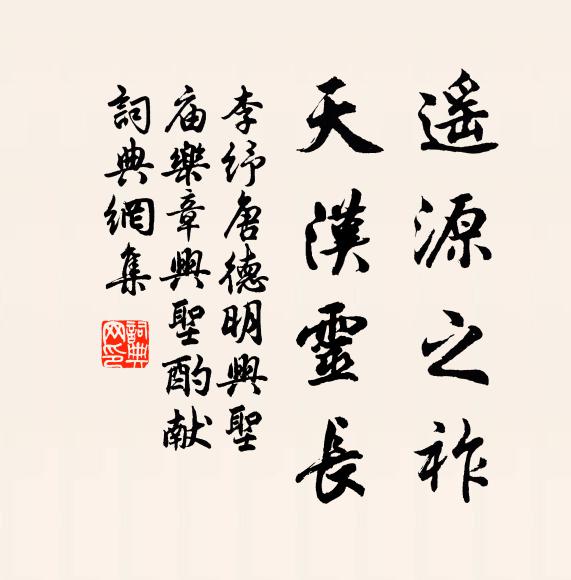 遥源之祚
天漢靈長
李纾唐德明興聖
庙樂章興聖酌献
詞典網集
詞典
网印